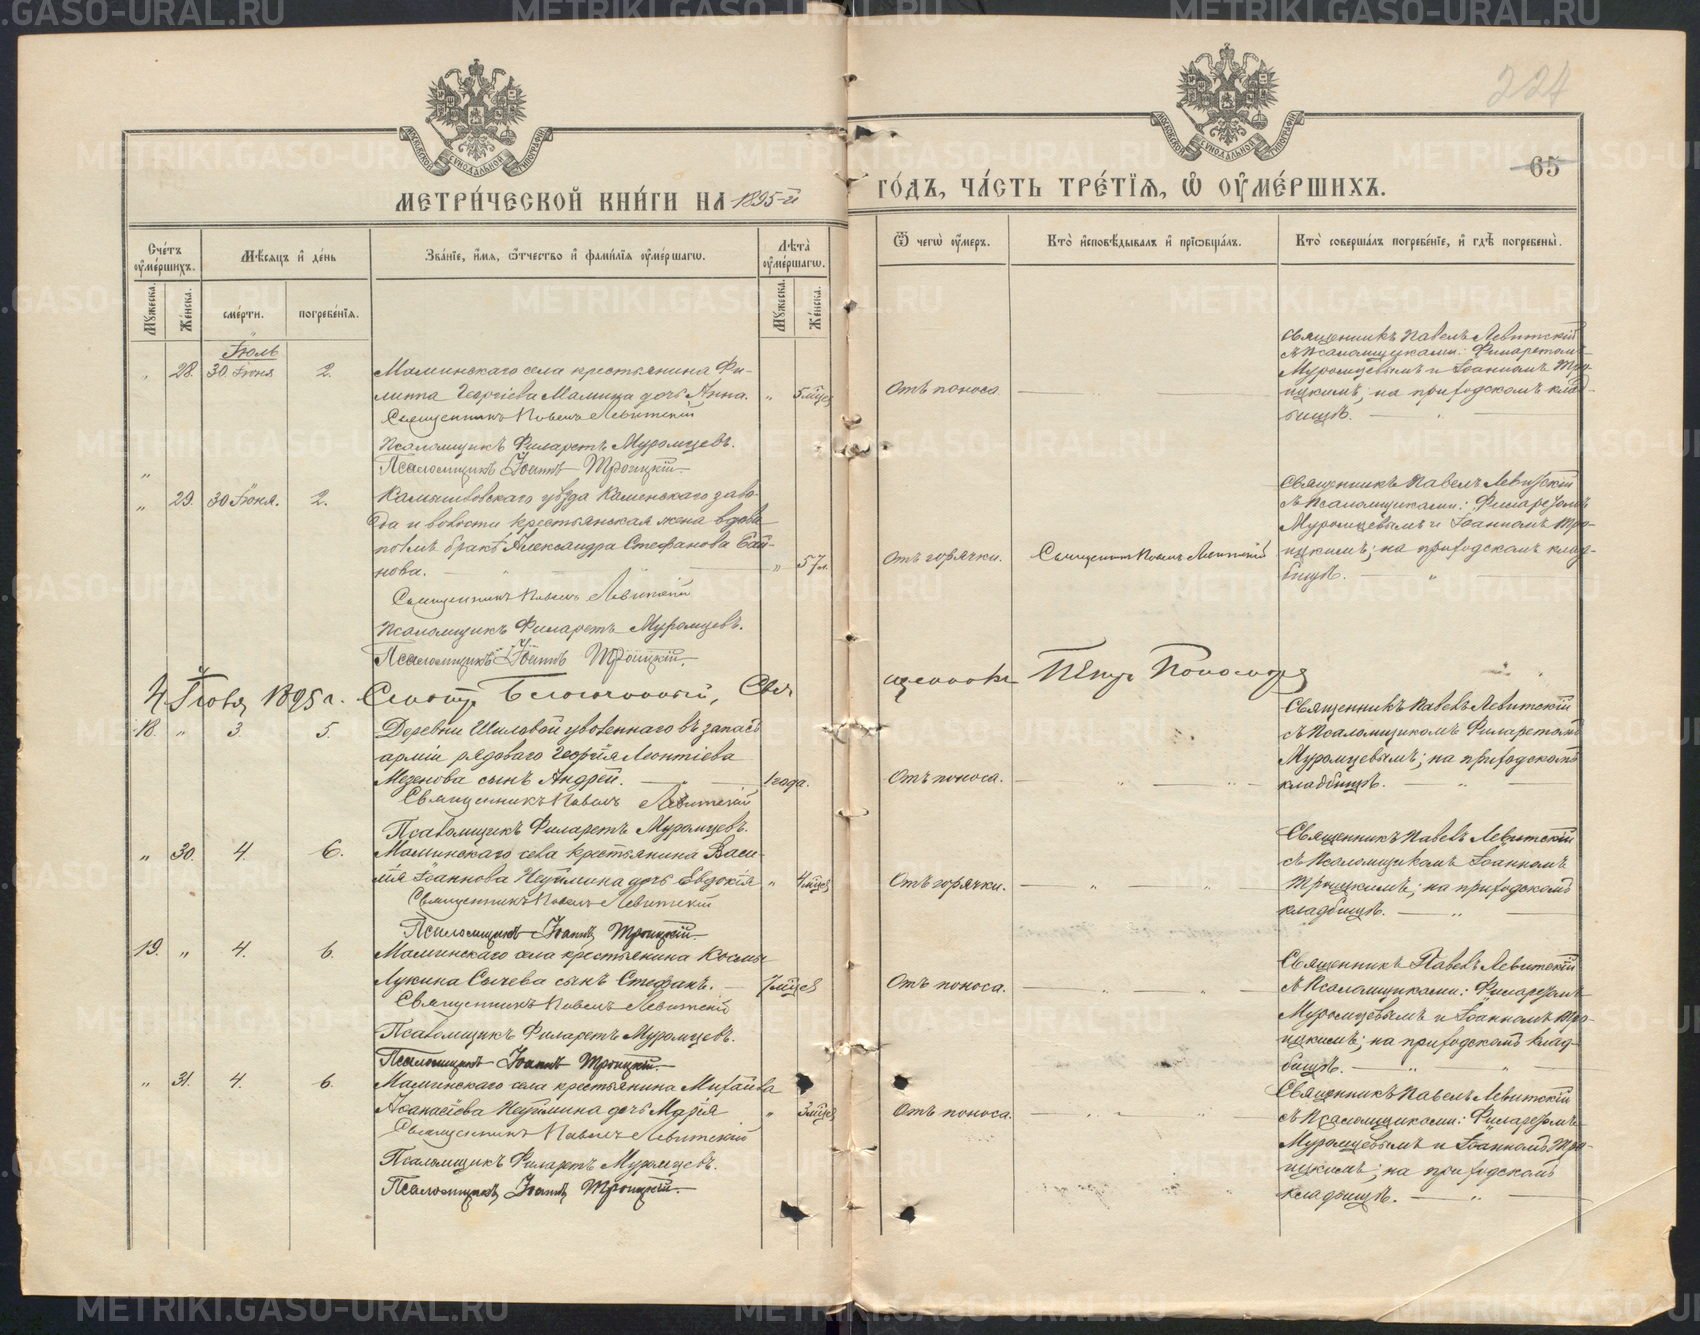 METRIKI.GASO-URAL.RU
224
65
МОСКОВСКОЙ СѴНОДАЛЬНОЙ ТИПОГРАФІИ
МЕТРИ́ЧЕСКОЙ КНИ́ГИ НА 1895-й
ГО́ДЪ, ЧА́СТЬ ТРЕ́ТІЯ, Ѽ ОУ҆МЕ́РШИХЪ.
Сче́тъ оу҆ме́ршихъ.
Мѣ́сяцъ и҆ де́нь
Зва́нїе, и҆́мя, ѻ҆́тчество и҆ фами́лїя оу҆ме́ршагѡ.
Лѣта̀ оу҆ме́ршагѡ.
Мꙋ́жеска.
Же́нска.
сме́рти.
погребе́нїя.
Мꙋ́жеска.
Же́нска.
Ѿ чегѡ̀ оу҆́меръ.
Кто̀ и҆сповѣ́дывалъ и҆ прїѻбща́лъ.
Кто̀ соверша́лъ погребе́нїе, и҆ гдѣ̀ погребены̀.
Іюль
„ 28. 30 Іюня 2. Маминскаго села крестьянина Фи-
липпа Георгіева Мамина дочь Анна. „ 5 мцев
Священникъ Павелъ Левитскій
Псаломщикъ Филаретъ Муромцевъ.
Псаломщикъ Іоаннъ Троицкій.
Отъ поноса
Священникъ Павелъ Левитскій
съ Псаломщиками: Филаретомъ
Муромцевымъ и Іоанномъ Тро-
ицкимъ; на приходскомъ клад-
бищѣ.
„ 29. 30 Іюня. 2. Камышловскаго уѣзда Каменскаго заво-
да и волости крестьянская жена вдова
Александра Стефанова
нова. „ 57 л.
Священникъ Павелъ Левитскій
Псаломщикъ Филаретъ Муромцевъ.
Псаломщикъ Іоаннъ Троицкій.
Отъ горячки. Священникъ Павелъ Левитскій
Священникъ Павелъ Левитскій
съ Псаломщиками: Филаретомъ
Муромцевымъ и Іоанномъ Тро-
ицкимъ; на приходскомъ клад-
бищѣ.
4 1895 г. Благочинный, Свя
щенникъ Петръ Пономарев
18. „ 3. 5. Деревни Шиловой уволеннаго въ запасъ
арміи рядоваго Георгія Леонтіева
Мезенова сынъ Андрей. 1 года.
Священникъ Павелъ Левитскій
Псаломщикъ Филаретъ Муромцевъ.
Отъ поноса.
Священникъ Павелъ Левитскій
съ Псаломщикомъ Филаретомъ
Муромцевымъ; на приходскомъ
кладбищѣ.
„ 30. 4. 6. Маминскаго села крестьянина Васи-
лія Іоаннова Неуймина дочь Евдокія „ 4 мцев
Священникъ Павелъ Левитскій
Псаломщикъ Іоаннъ Троицкій.
Отъ горячки.
Священникъ Павелъ Левитскій
съ Псаломщикомъ Іоанномъ
Троицкимъ; на приходскомъ
кладбищѣ.
19. „ 4. 6. Маминскаго села крестьянина Космы
Лукина Сычева сынъ Стефанъ. 7 мцев
Священникъ Павелъ Левитскій
Псаломщикъ Филаретъ Муромцевъ.
Псаломщикъ Іоаннъ Троицкій.
Отъ поноса.
Священникъ Павелъ Левитскій
съ Псаломщиками: Филаретомъ
Муромцевымъ и Іоанномъ Тро-
ицкимъ; на приходскомъ клад-
бищѣ.
„ 31. 4. 6. Маминскаго села крестьянина Михаила
Аѳанасіева Неуймина дочь Марія „ 3 мцев
Священникъ Павелъ Левитскій
Псаломщикъ Филаретъ Муромцевъ.
Псаломщикъ Іоаннъ Троицкій.
Отъ поноса.
Священникъ Павелъ Левитскій
съ Псаломщиками: Филаретомъ
Муромцевымъ и Іоанномъ Тро-
ицкимъ; на приходскомъ
кладбищѣ.